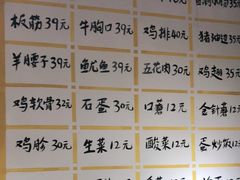 板筋39元 牛胸口39元 鸡排40元
羊腰子39元 鱿鱼39元 五花肉30元 鸡翅35元
鸡软骨32元 石蛋30元 口蘑12元 金针菇12元
鸡胗30元 生菜12元 酸菜12元 蛋炒饭12元